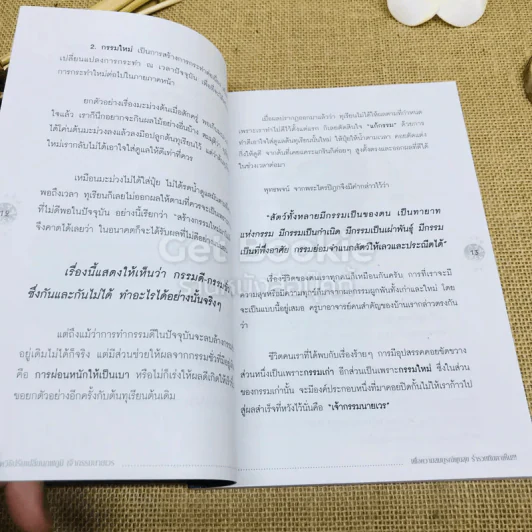 2. กรรมใหม่ เป็นการสร้างการกระทำต่อเนื่อง
เปลี่ยนแปลงการกระทำ ณ เวลาปัจจุบัน เพื่อ
การกระทำใหม่ต่อไปในภายภาคหน้า
ยกตัวอย่างเรื่องมะม่วงต้นเมื่อสักครู่ พอ
ใจแล้ว เราก็นึกอยากจะกินผลไม้อย่างอื่นบ้าง
ได้โค่นต้นมะม่วงลงแล้วลงมือปลูกต้นทุเรียนไว้
ใหม่เรากลับไม่ได้เอาใจใส่ดูแลให้ดีเท่าที่ควร
เหมือนมะม่วงไม่ได้ใส่ปุ๋ย ไม่ได้รดน้ำดูแล
พอถึงเวลา ทุเรียนก็เลยไม่ออกผลให้ตามที่ควรจะเป็น
ที่ไม่ดีพอในปัจจุบัน อย่างนี้เรียกว่า "สร้างกรรมใหม่
คาดได้เลยว่า ในอนาคตก็จะได้รับผลที่ไม่ดีอย่าง
12
เรื่องนี้แสดงให้เห็นว่า กรรมดี-กรรม
ซึ่งกันและกันไม่ได้ ทำอะไรได้อย่างนั้นจริงๆ
แต่ถึงแม้ว่าการทำกรรมดีในปัจจุบันจะลบล้าง
อยู่เดิมไม่ได้ก็จริง แต่มีส่วนช่วยให้ผลจากกรรมชั่วที่มี
คือ การผ่อนหนักให้เป็นเบา หรือไม่ก็เร่งให้ผลดีเกิดให้
ขอยกตัวอย่างอีกครั้งกับต้นทุเรียนต้นเดิม
เมื่อผลปรากฏออกมาแล้วว่า ทุเรียนไม่ได้ให้ผลตามที่กำหนด
เพราะเราทำไม่ดีไว้ตั้งแต่แรก ก็เลยตัดสินใจ "แก้กรรม" ด้วยการ
ทำดีเอาใจใส่ดูแลต้นทุเรียนนั้นใหม่ ใส่ปุ๋ยให้น้ำตามเวลา คอยตัดแต่ง
ในช่วงเวลาต่อมา
พุทธพจน์ จากพระไตรปิฎกจึงมีคำกล่าวไว้ว่า
"สัตว์ทั้งหลายมีกรรมเป็นของตน เป็นทายาท
แห่งกรรม มีกรรมเป็นกำเนิด มีกรรมเป็นเผ่าพันธุ์ มีกรรม
เป็นที่พึ่งอาศัย กรรมย่อมจำแนกสัตว์ให้เลวและประณีตได้"
13
เรื่องชีวิตของคนเราทุกคนก็เหมือนกันครับ การที่เราจะมี
ความสุขหรือมีความทุกข์ก็มาจากผลกรรมผูกพันทั้งเก่าและใหม่ โดย
จะเป็นแบบนี้อยู่เสมอ ครูบาอาจารย์คนสำคัญของบ้านเรากล่าวตรงกัน
ว่า
ชีวิตคนเราที่ได้พบกับเรื่องร้ายๆ การมีอุปสรรคคอยขัดขวาง
ส่วนหนึ่งเป็นเพราะกรรมเก่า อีกส่วนเป็นเพราะกรรมใหม่ ซึ่งในส่วน
ของกรรมเก่านั้น จะมีองค์ประกอบหนึ่งที่มาคอยปิดกั้นไม่ให้เราก้าวไป
สู่ผลสำเร็จที่หวังไว้นั่นคือ "เจ้ากรรมนายเวร"
Get Bookie